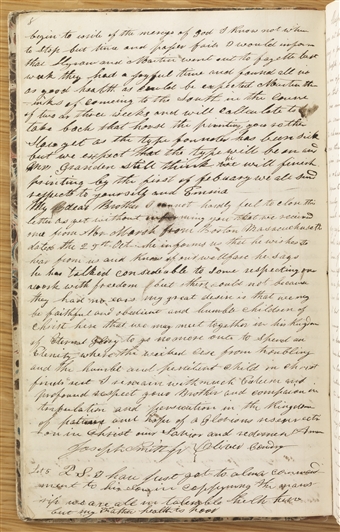 8
begin to write of the mercys of god I know not when
to stop but time and paper fails I would inform
that Hyram and Martin went out to fayette last
week they had a joyful time and found all in
as good health as could be expected Martin th
inks of coming to the South in the course
of two or three weeks and will calculate to
take back that horse the printing goes rather
Slow yet as the type founder has been sick
but we expect that the type will be on and
Mr. Granden still think we will finish
printing by the first of febuary we all send
respects to
My dear Brother I cannot hardly feel to close this
letter as yet without informing you that we received
one from Mr. Marsh from Boston Massachusetts
dated the 25th Oct he informs us that he wishes to
hear from us and know of our wellfare he says
he has talked considerable to some respecting our
work with freedom but others could not because
they had no ears my great desire is that we may
be faithful and obedient and humble children of
Christ here that we may meet together in his Kingdom
of Eternal Glory to go no more out to spend an
Eternity where the wicked cese from troubling
and the humble and penitent child in christ
finds rest I remain with much Esteem and
profound respect your Brother and companion in
tribulation and persecution in the Kingdom
of patience and hope of a Glorious resurrecti
on in Christ our Savior and redeemer Amen
Joseph Smith Jr Oliver Cowdery
P.S. I have just got to alma commandment
ment to his son in coppying the manus
we are all in tolerable helth here
but my mother health is poor